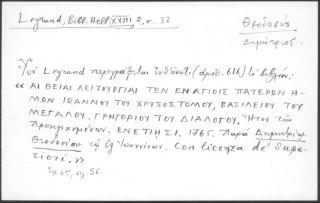 Legrand, Bibl. Hell. XVIII, 2, σ. 32
Θεοδοσίου
Δημήτριος.
Ὑπὸ Legrand περιγράφεται ἐνθ' ἀνωτ. (ἀριθ. 616) τὸ βιβλίον:
« ΑΙ ΘΕΙΑΙ ΛΕΙΤΟΥΡΓΙΑΙ ΤΩΝ ΕΝ ΑΓΙΟΙΣ ΠΑΤΕΡΩΝ Η-
ΜΩΝ ΙΩΑΝΝΟΥ ΤΟΥ ΧΡΥΣΟΣΤΟΜΟΥ, ΒΑΣΙΛΕΙΟΥ ΤΟΥ
ΜΕΓΑΛΟΥ, ΓΡΗΓΟΡΙΟΥ ΤΟΥ ΔΙΑΛΟΓΟΥ. Ἤτοι τῶν
Προηγιασμένων. ΕΝΕΤΙΗΣΙ. 1765. Παρὰ Δημητρίῳ
Θεοδοσίου τῷ ἐξ Ἰωαννίνων. Con licenza de' Supe-
riori. »
σ. 56.